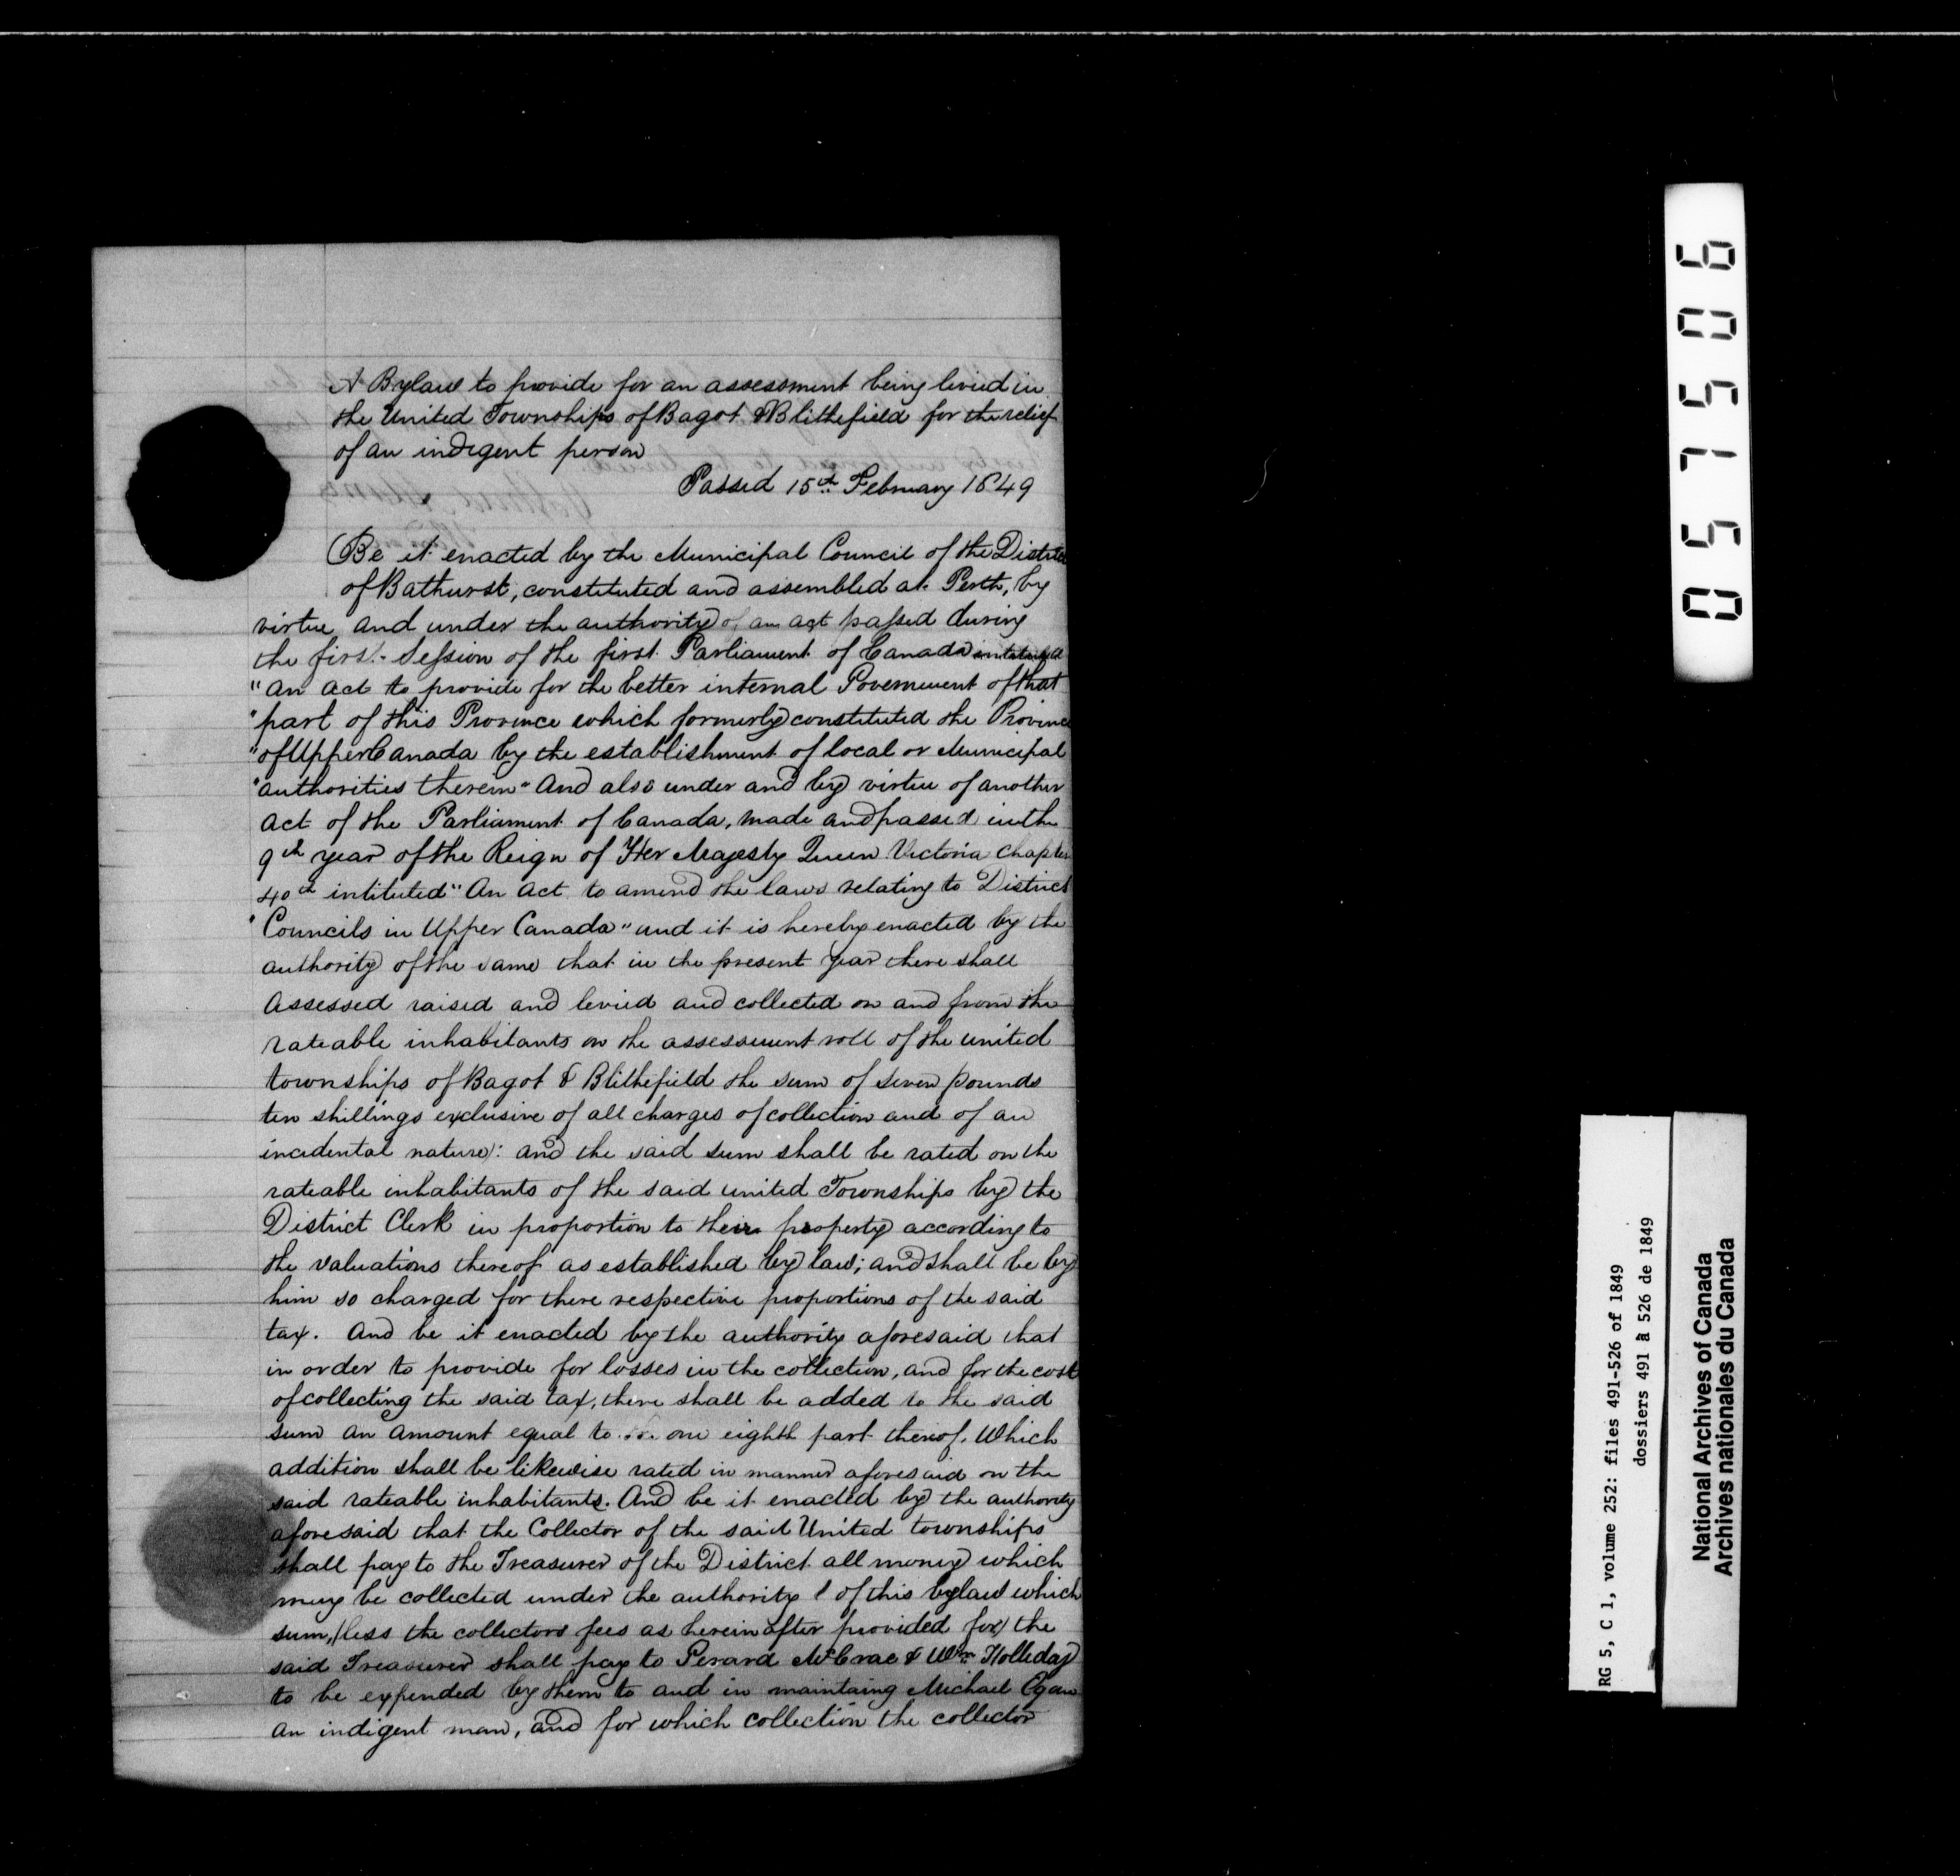 A Bylaw to provide for an assessment being levied in
the United Townships of Bagot & Blithefield for the relief
of an indigent person
Passed 15th February 1849
Be it enacted by the Municipal Council of the District
of Bathurst, constituted and assembled at Perth, by
virtue and under the authority of an act passed during
the first Session of the first Parliament of Canada
"An Act to provide for the better internal Government of that
"part of this Province which formerly constituted the Province
"of Upper Canada by the establishment of local or Municipal
"authorities therein" And also under and by virtue of another
Act of the Parliament of Canada, made and passed in the
9th year of the Reign of Her Majesty Queen Victoria Chapter
40th intituted "An Act to amend the laws relating to District
"Councils in Upper Canada" and it is hereby enacted by the
authority of the same that in the present Year there shall
Assessed raised and levied and collected on and from the
rateable inhabitants on the assessment roll of the united
townships of Bagot & Blithefield the sum of seven pounds
ten shillings exclusive of all charges of collection and of an
incidental nature: and the said sum shall be rated on the
rateable inhabitants of the said united Townships by the
District Clerk in proportion to their property according to
the valuations thereof as established by law; and shall be by
him so charged for there respective proportions of the said
tax. And be it enacted by the authority aforesaid that
in order to provide for losses in the collection, and for the cost
of collecting the said tax, there shall be added to the said
sum an amount equal to one eighth part thereof, Which
addition shall be likewise rated in manner aforesaid on the
said rateable inhabitants. And be it enacted by the authority
aforesaid that the Collector of the said United townships
shall pay to the Treasurer of the District all money which
may be collected under the authority of this bylaw which
sum, (less the collectors fees as herein after provided for) the
said Treasurer shall pay to McCrae & Wm Holliday
to be expended by them to and in maintaing Michael Egan
an indigent man, and for which collection the collector
057506
RG 5, C 1, volume 252: files 491-526 of 1849
dossiers 491 à 526 de 1849
National Archives of Canada
Archives nationales du Canada